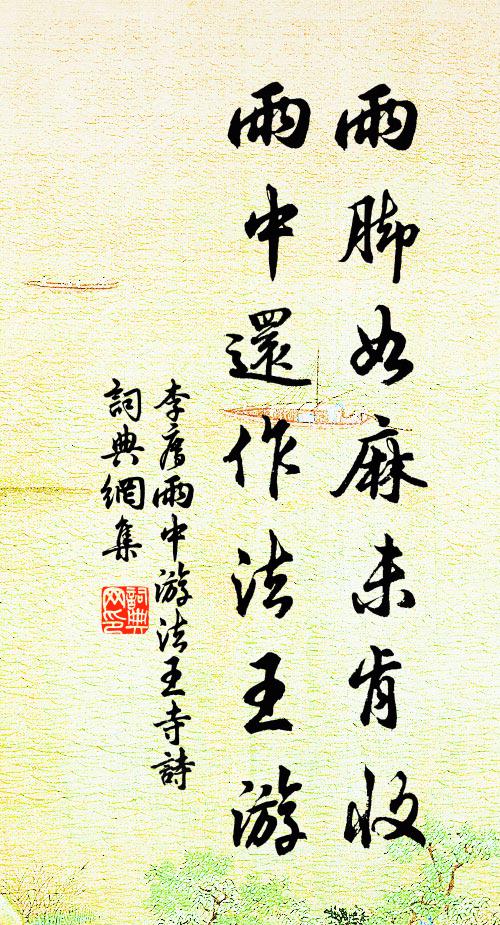 雨脚如麻未肯收
雨中還作法王游
李廌雨中游法王寺詩
詞典網集
詞典网印